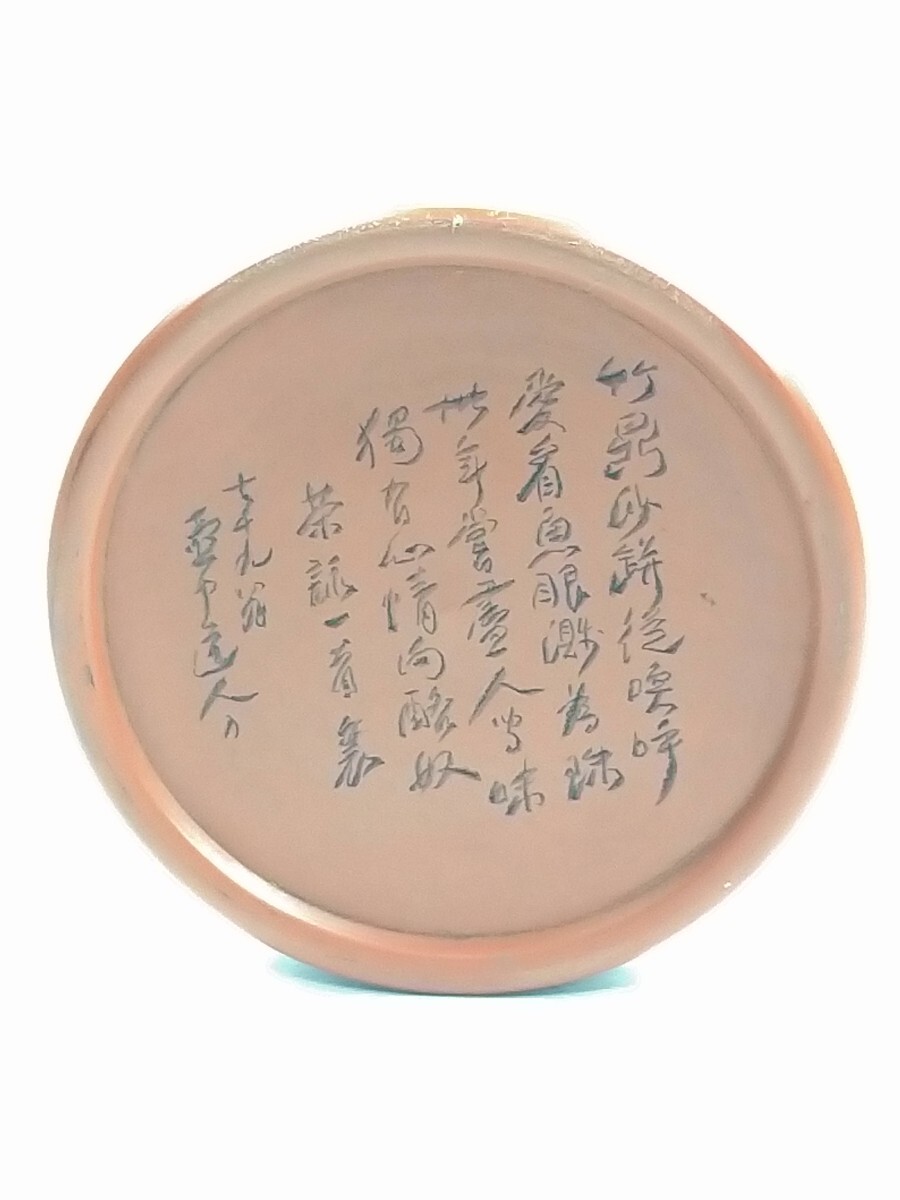 竹鼎砂缾從喚呼
愛看魚眼濺為珠
卅年嘗盡人間味
獨有心情向酪奴
茶詠一首
七十九翁
道人